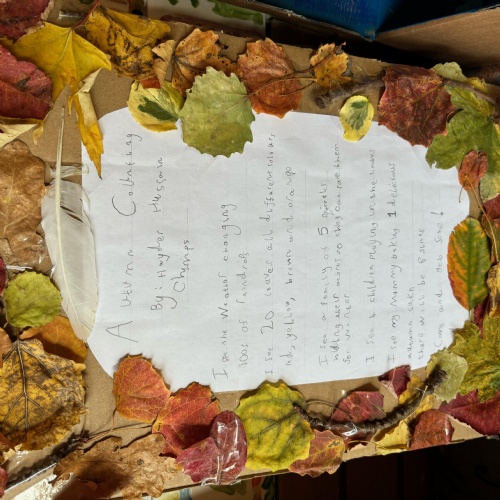 Autumn Counting
By: Hayder Hussain
Chumps
I see the Weather changing
100s of raindrops
I see 20 leaves all different colours,
red, yellow, brown and orange
I see a family of 5 squirrels
hiding their nuts so they can save them
for winter
I see 6 children playing in the leaves
I see my mummy baking 1 delicious
autumn cake
there will be
and